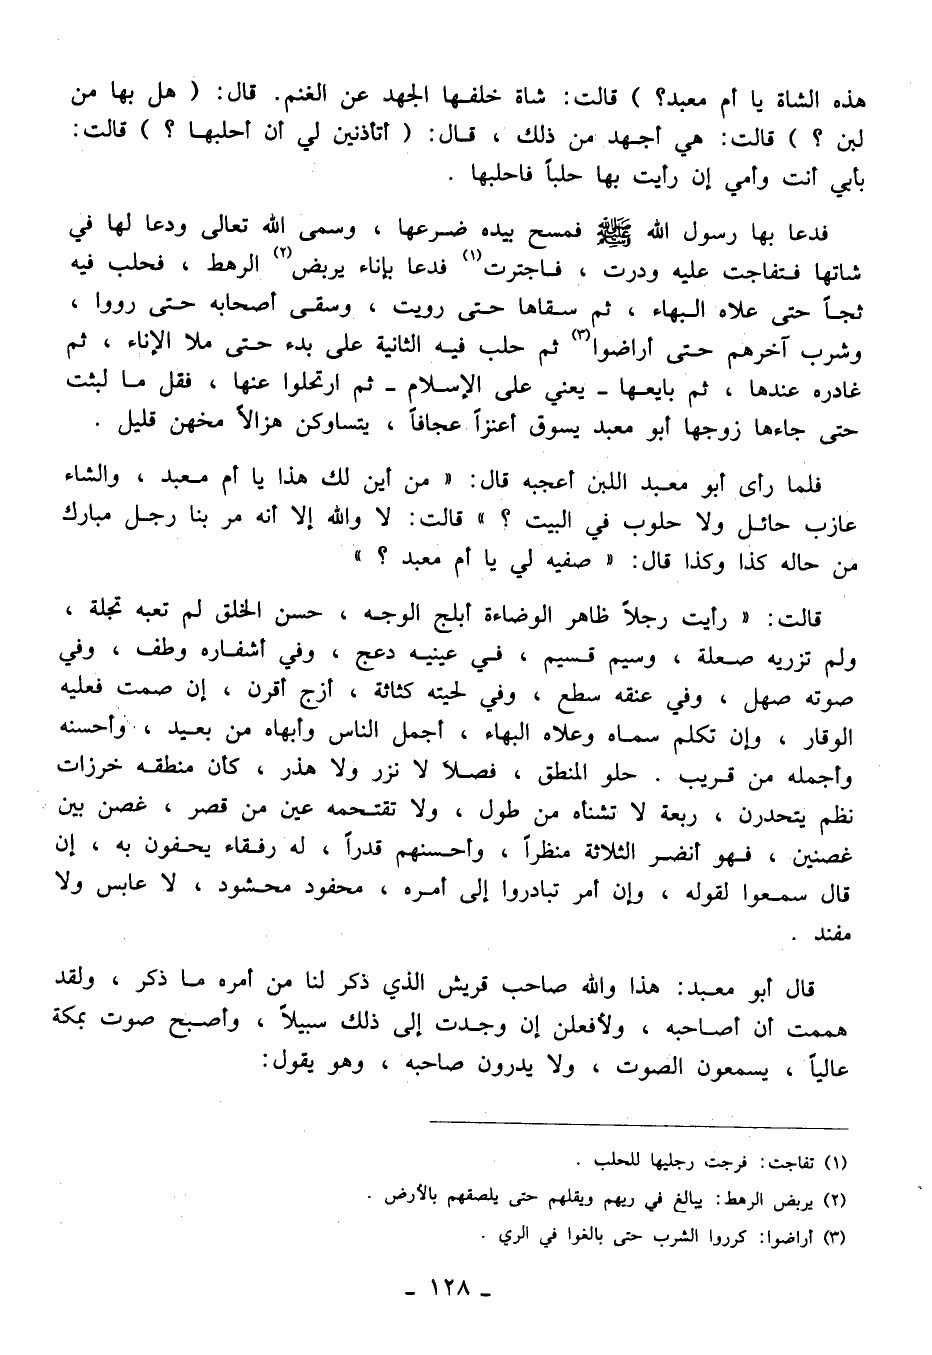 هذه الشاة يا أم معبد؟ ) قالت: شاة خلفها الجهد عن الغنم. قال: ( هل بها من
لبن ؟ ) قالت: هي أجهد من ذلك ، قال: ( أتأذنين لي أن أحلبها ؟ ) قالت:
بأبي أنت وأمي إن رأيت بها حلباً فاحلبها .
فدعا بها رسول الله ﷺ فمسح بيده ضرعها ، وسمى الله تعالى ودعا لها في
شاتها فتفاجت عليه ودرت ، فاجترت(١) فدعا بإناء يربض(٢) الرهط ، فحلب فيه
ثجاً حتى علاه البهاء ، ثم سقاها حتى رويت ، وسقى أصحابه حتى رووا ،
وشرب آخرهم حتى أراضوا(٣) ثم حلب فيه الثانية على بدء حتى ملا الإناء ، ثم
غادره عندها ، ثم بايعها ـ يعني على الإسلام ـ ثم ارتحلوا عنها ، فقل ما لبثت
حتى جاءها زوجها أبو معبد يسوق أعنزاً عجافاً ، يتساوكن هزالاً مخهن قليل .
فلما رأى أبو معبد اللبن أعجبه قال: « من أين لك هذا يا أم معبد ، والشاء
عازب حائل ولا حلوب في البيت ؟ » قالت: لا والله إلا أنه مر بنا رجل مبارك
من حاله كذا وكذا قال: « صفيه لي يا أم معبد ؟ »
قالت: « رأيت رجلاً ظاهر الوضاءة أبلج الوجه ، حسن الخلق لم تعبه تجلة ،
ولم تزريه صعلة ، وسيم قسيم ، في عينيه دعج ، وفي أشفاره وطف ، وفي
صوته صهل ، وفي عنقه سطع ، وفي لحيته كثاثة ، أزج أقرن ، إن صمت فعليه
الوقار ، وإن تكلم سماه وعلاه البهاء ، أجمل الناس وأبهاه من بعيد ، وأحسنه
وأجمله من قريب . حلو المنطق ، فصلاً لا نزر ولا هذر ، كأن منطقه خرزات
نظم يتحدرن ، ربعة لا تشناه من طول ، ولا تقتحمه عين من قصر ، غصن بين
غصنين ، فهو أنضر الثلاثة منظراً ، وأحسنهم قدراً ، له رفقاء يحفون به ، إن
قال سمعوا لقوله ، وإن أمر تبادروا إلى أمره ، محفود محشود ، لا عابس ولا
مفند .
قال أبو معبد: هذا والله صاحب قريش الذي ذكر لنا من أمره ما ذكر ، ولقد
هممت أن أصاحبه ، ولأفعلن إن وجدت إلى ذلك سبيلاً ، وأصبح صوت بمكة
عالياً ، يسمعون الصوت ، ولا يدرون صاحبه ، وهو يقول:
(١) تفاجت: فرجت رجليها للحلب .
(٢) يربض الرهط: يبالغ في ريهم ويقلهم حتى يلصقهم بالأرض .
(٣) أراضوا: كرروا الشرب حتى بالغوا في الري .
ـ ١٢٨ ـ